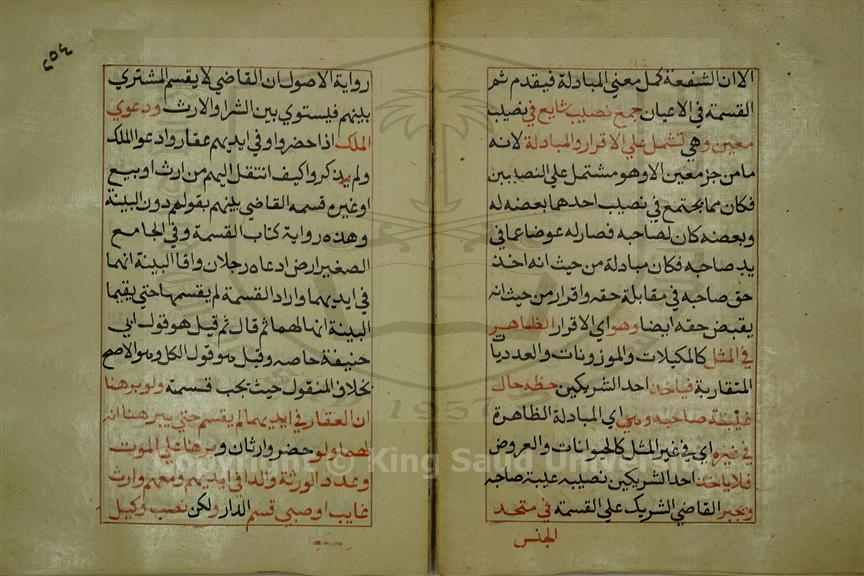 الا ان الشفعة كمل معنى المبادلة فيقدم ثم
القسمة في الاعيان جمع نصيب شايع في نصيب
معين وهي تشمل علي الاقرار والمبادلة لانه
ما من جز معين الا وهو مشتمل علي النصيبين
فكان مما يجتمع في نصيب احدهما بعضه له
وبعضه كان لصاحبه فصار له عوضا عما في
يد صاحبه فكان مبادلة من حيث انه اخذ
حق صاحبه في مقابلة حقه واقرار من حيث انه
يقبض حقه ايضا وهو اي الاقرار الظاهر
في المثل كالمكيلات والموزونات والعدديات
المتقاربة فياخذ احد الشريكين حظه حال
غيبة صاحبه وهي اي المبادلة الظاهرة
في غيره اي في غير المثل كالحيوانات والعروض
فلا ياخذ احد الشريكين نصيبه غيبة صاحبه
ويجبر القاضي الشريك علي القسمة في متحد
الجنس
٢٥٤
رواية الاصول ان القاضي لا يقسم المشتري
بينهم فيستوي بين الشرا والارث ودعوي
الملك اذا حضروا وفي ايديهم عقار وادعوا الملك
ولم يذكروا كيف انتقل اليهم من ارث او بيع
او غيره قسمه القاضي بينهم بقولهم دون البينة
وهذه رواية كتاب القسمة وفي الجامع
الصغير ارض ادعاه رجلان واقا البينة انهما
في ايديهما واراد القسمة لم يقسمها حتي يقيما
البينة انها لهما ثم قال ثم قيل هو قول ابي
حنيفة خاصه وقيل هو قول الكل وهو الاصح
بخلاف المنقول حيث يجب قسمته ولو برهنا
ان العقار في ايديهما لم يقسم حتي يبرهنا انه
لهما ولو حضر وارثان وبرهنا علي الموت
وعدد الورثة والدار في ايديهم ومعهم وارث
غايب او صبي قسم الدار ولكن نصب وكيل
Copyright © King Saud University
1957